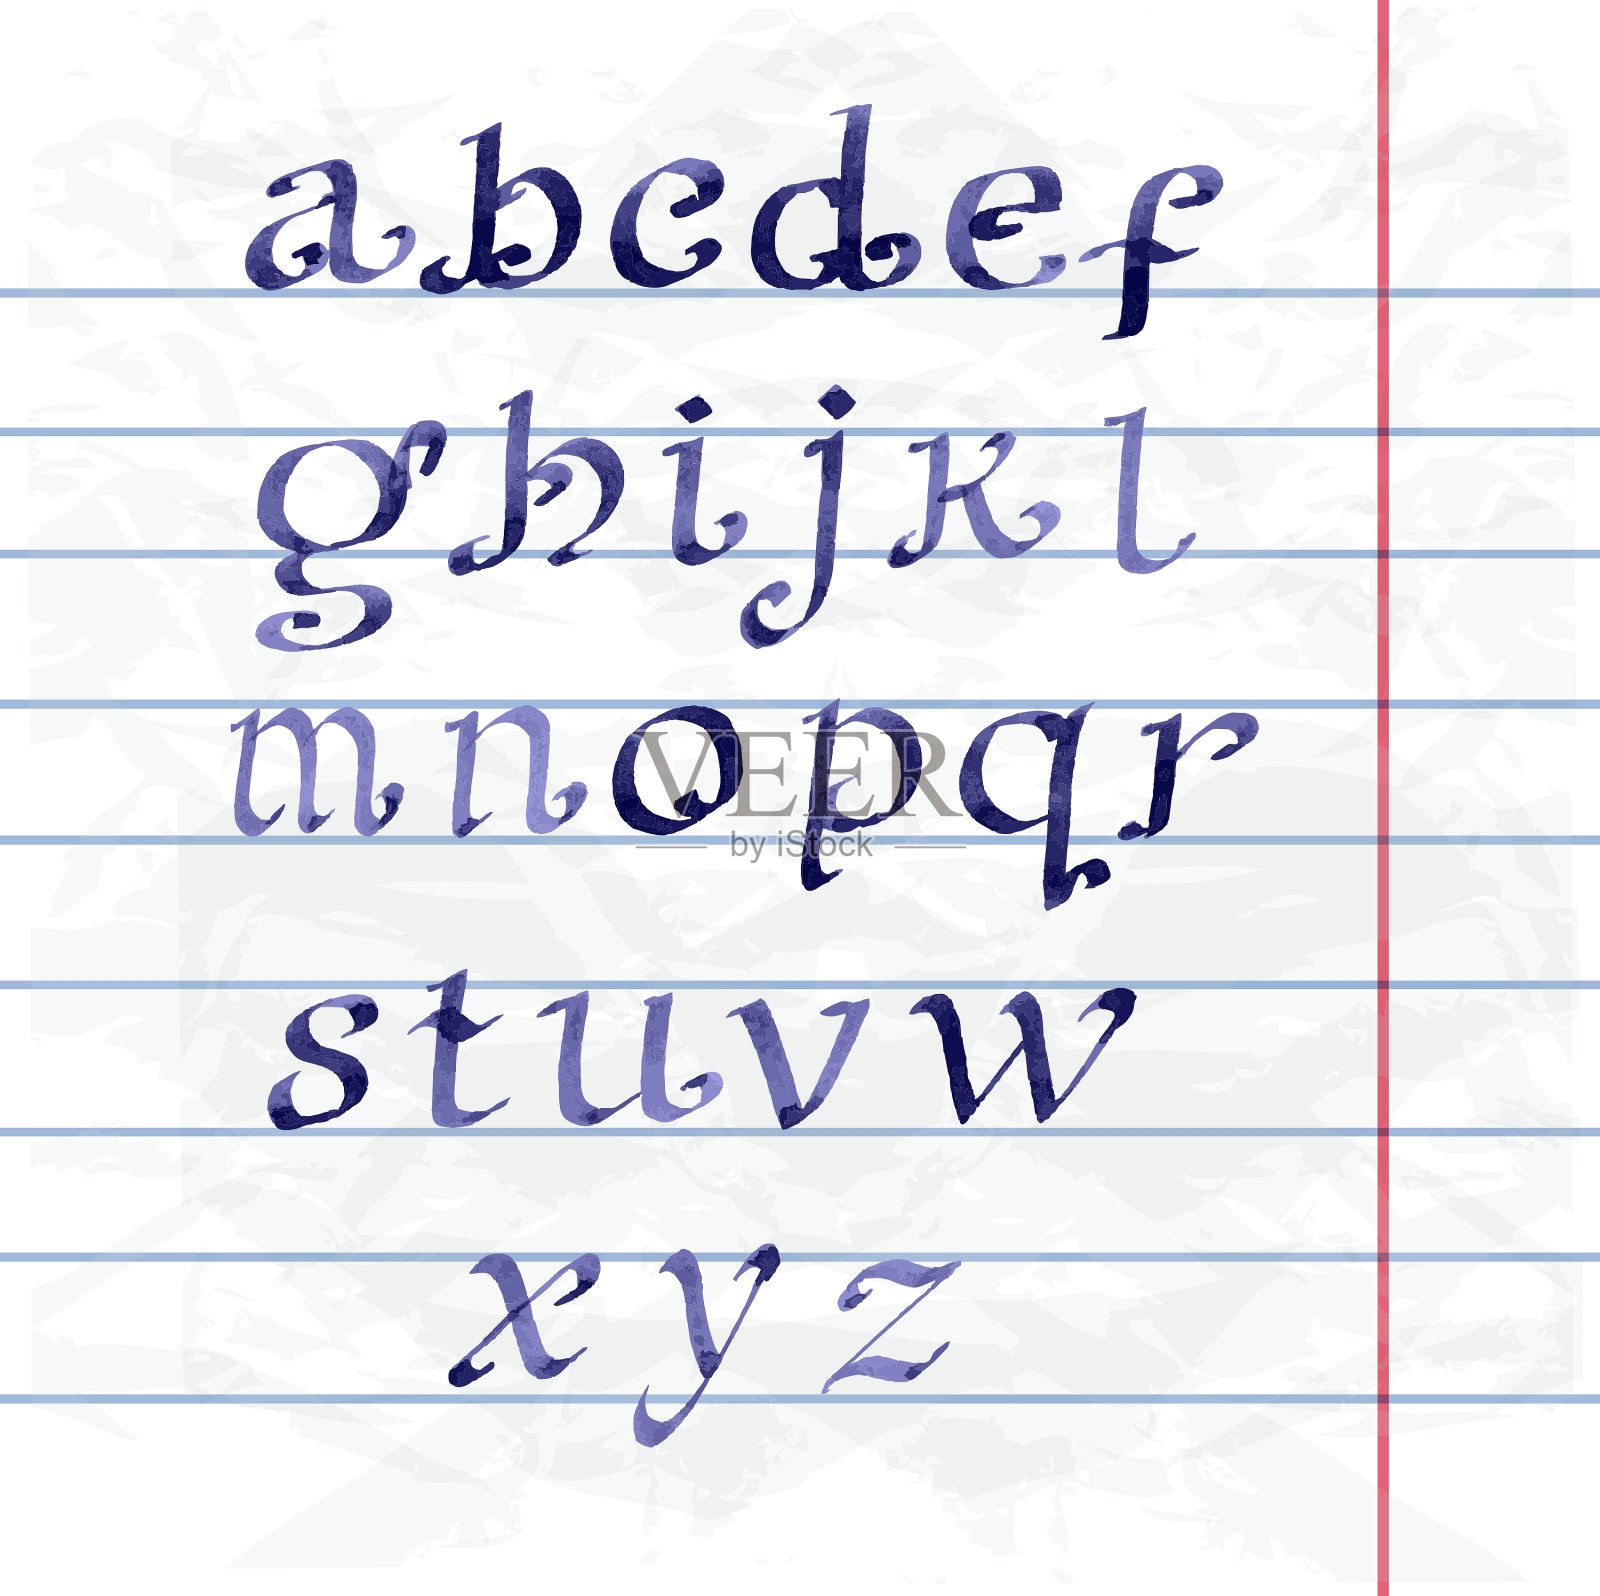 abcdef
ghijkl
mnopqr
VEER
by iStock
stuvw
xyz